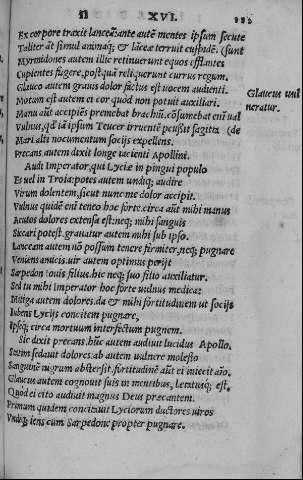 Π XVI. 182
Ex corpore traxit lanceã: ante autẽ mentes ipsum secutæ
Taliter at simul animaq; & lãceæ terruit cuspidẽ. (sunt
Myrmidones autem illic retinuerunt equos efflantes
Cupientes fugere, postquã reliquerunt currus regum.
Glauco autem grauis dolor factus est uocem audienti. Glaucus uul
Motum est autem ei cor quod non potuit auxiliari. neratur.
Manu aũt accipiẽs premebat brachiũ. cõsumebat enĩ ual
Vulnus, qđ iã ipsum Teucer irruentẽ peussit sagitta (de
Mari alti nocumentum socijs expellens.
Precans autem dixit longe iacienti Apollini.
Audi Imperator, qui Lyciæ in pingui populo
Es uel in Troia: potes autem undiq; audire
Virum dolentem, sicut nunc me dolor accipit.
Vulnus quidẽ enĩ teneo hoc forte. circa aũt mihi manus
Acutos dolores extensa est: neq; mihi sanguis
Siccari potest. grauatur autem mihi sub ipso.
Lanceam autem nõ possum tenere firmiter, neq; pugnare
Veniens amicis. uir autem optimus perijt
Sarpedon Iouis filius. hic neq; suo filio auxiliatur.
Sed tu mihi Imperator hoc forte uulnus medica:
Mitiga autem dolores. da & mihi fortitudinem ut socijs
Iubens Lycijs concitem pugnare,
Ipseq; circa mortuum interfectum pugnem.
Sic dixit precans. hũc autem audiuit lucidus Apollo.
Statim sedauit dolores. ab autem uulnere molesto
Sanguinẽ nigrum abstersit. fortitudinẽ aũt ei iniecit aĩo.
Glaucus autem cognouit suis in mentibus, lætatusq; est,
Quod ei cito audiuit magnus Deus precantem.
Primum quidem concitauit Lyciorum ductores uiros
Vndiq; iens cum Sarpedone propter pugnare.